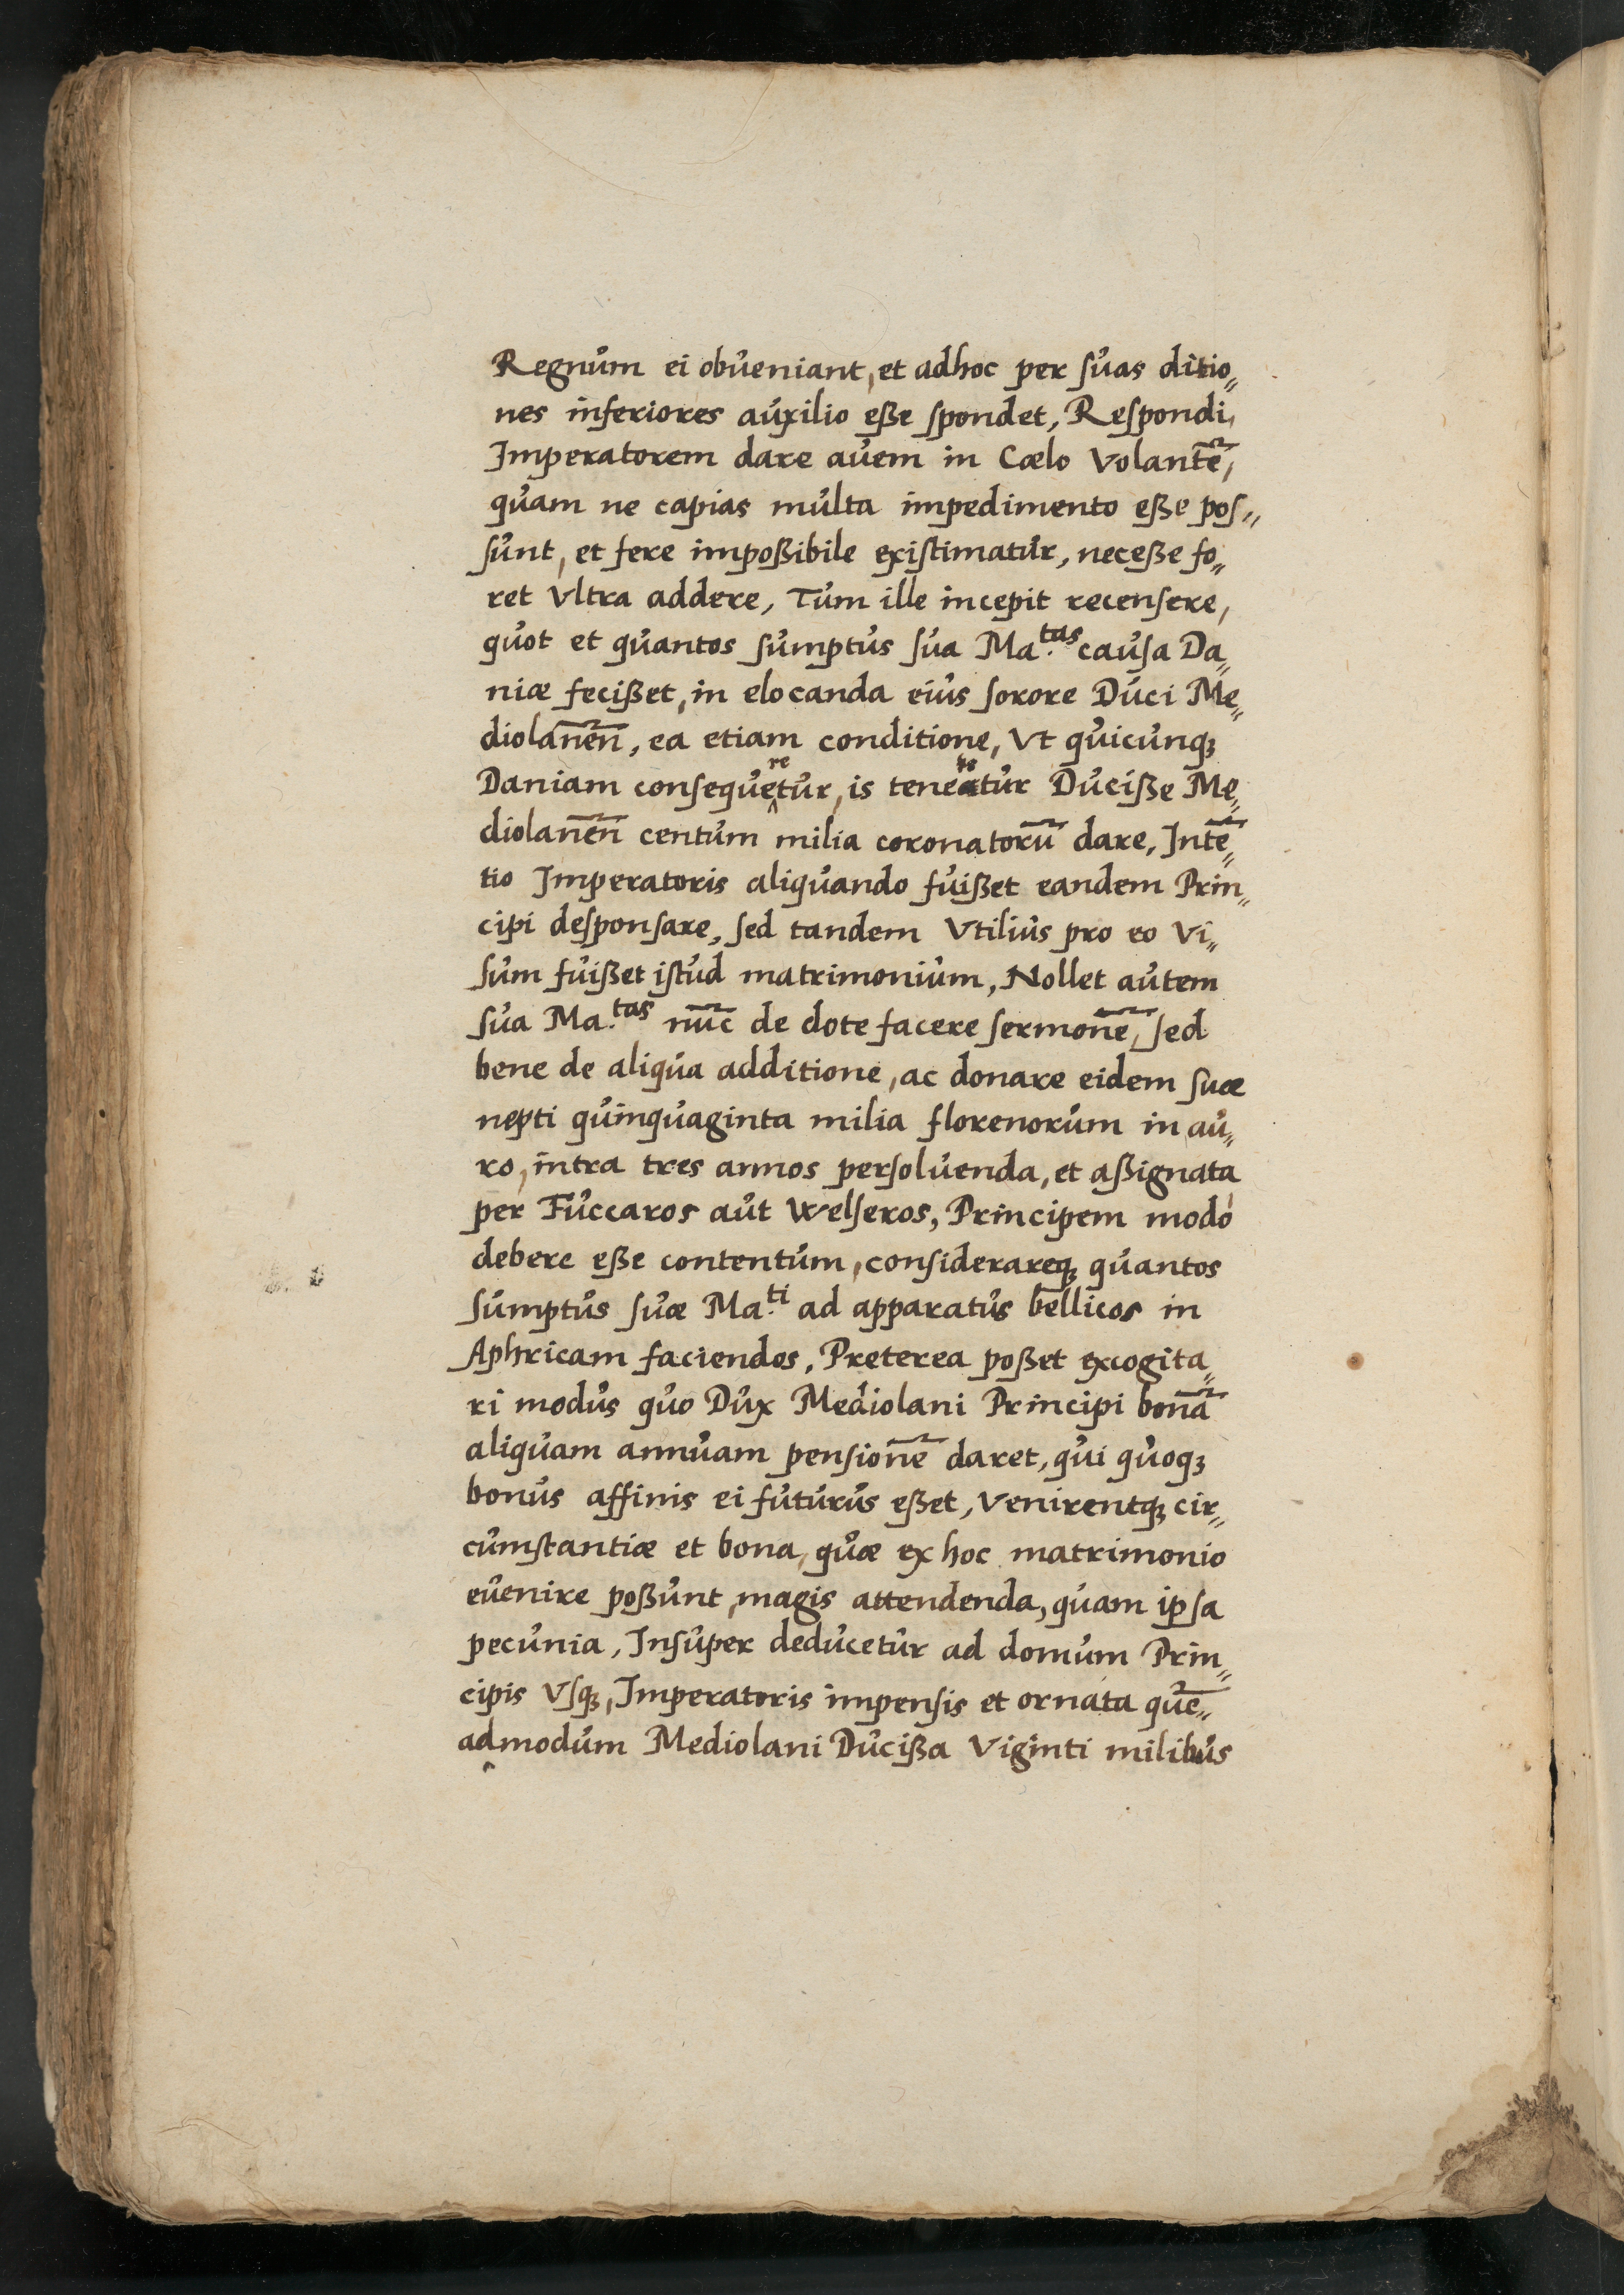 Regnum ei obueniant, et adhoc per ſuas ditio„
nes inferiores auxilio eße ſpondet, Reſpondi,
Imperatorem dare auem in Cœlo Volantē,
quam ne capias multa impedimento eße poſ„
ſunt, et fere impoßibile exiſtimatur, neceße fo„
ret Vltra addere, Tum ille incepit recenſere,
quot et quantos ſumptus ſua Ma.tas cauſa Da„
niæ fecißet, in elocanda eius ſorore Duci Me„
diolanēn̄, ea etiam conditione, Vt quicunqꝫ
Daniam conſequeretur, is teneretur Ducißę Me„
diolanēn̄ centum milia coronatorū dare, Intē„
tio Imperatoris aliquando fuißet eandem Prin„
cipi deſponſare, ſed tandem Vtilius pro eo Vi„
ſum fuißet iſtud matrimonium, Nollet autem
ſua Ma.tas nūc de dote facere ſermonē, ſed
bene de aliqua additione, ac donare eidem ſuæ
nepti quinquaginta milia florenorum in au„
ro, intra tres annos perſoluenda, et aßignata
per Fuccaros aut Welſeros, Principem modo
debere eße contentum, conſiderareqꝫ quantos
ſumptus ſuæ Ma.ti ad apparatus bellicos in
Aphricam faciendos, Preterea poßet excogita„
ri modus quo Dux Mediolani Principi bonā
aliquam annuam penſionē daret, qui quoqꝫ
bonus affinis ei futurus eßet, Venirentqꝫ cir„
cumſtantiæ et bona, quæ ex hoc matrimonio
euenire poßunt, magis attendenda, quam ipſa
pecunia, Inſuper deducetur ad domum Prin„
cipis Vſqꝫ, Imperatoris impenſis et ornata quē„
admodum Mediolani Ducißa Viginti milibus